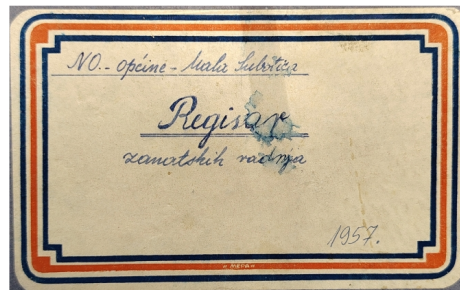 NO.- općine - Mala Subotica
Registar
zanatskih radnja
1957.